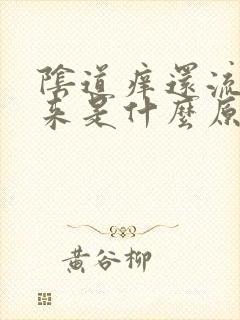 陰道痒還流
来是什麼原
黃谷柳